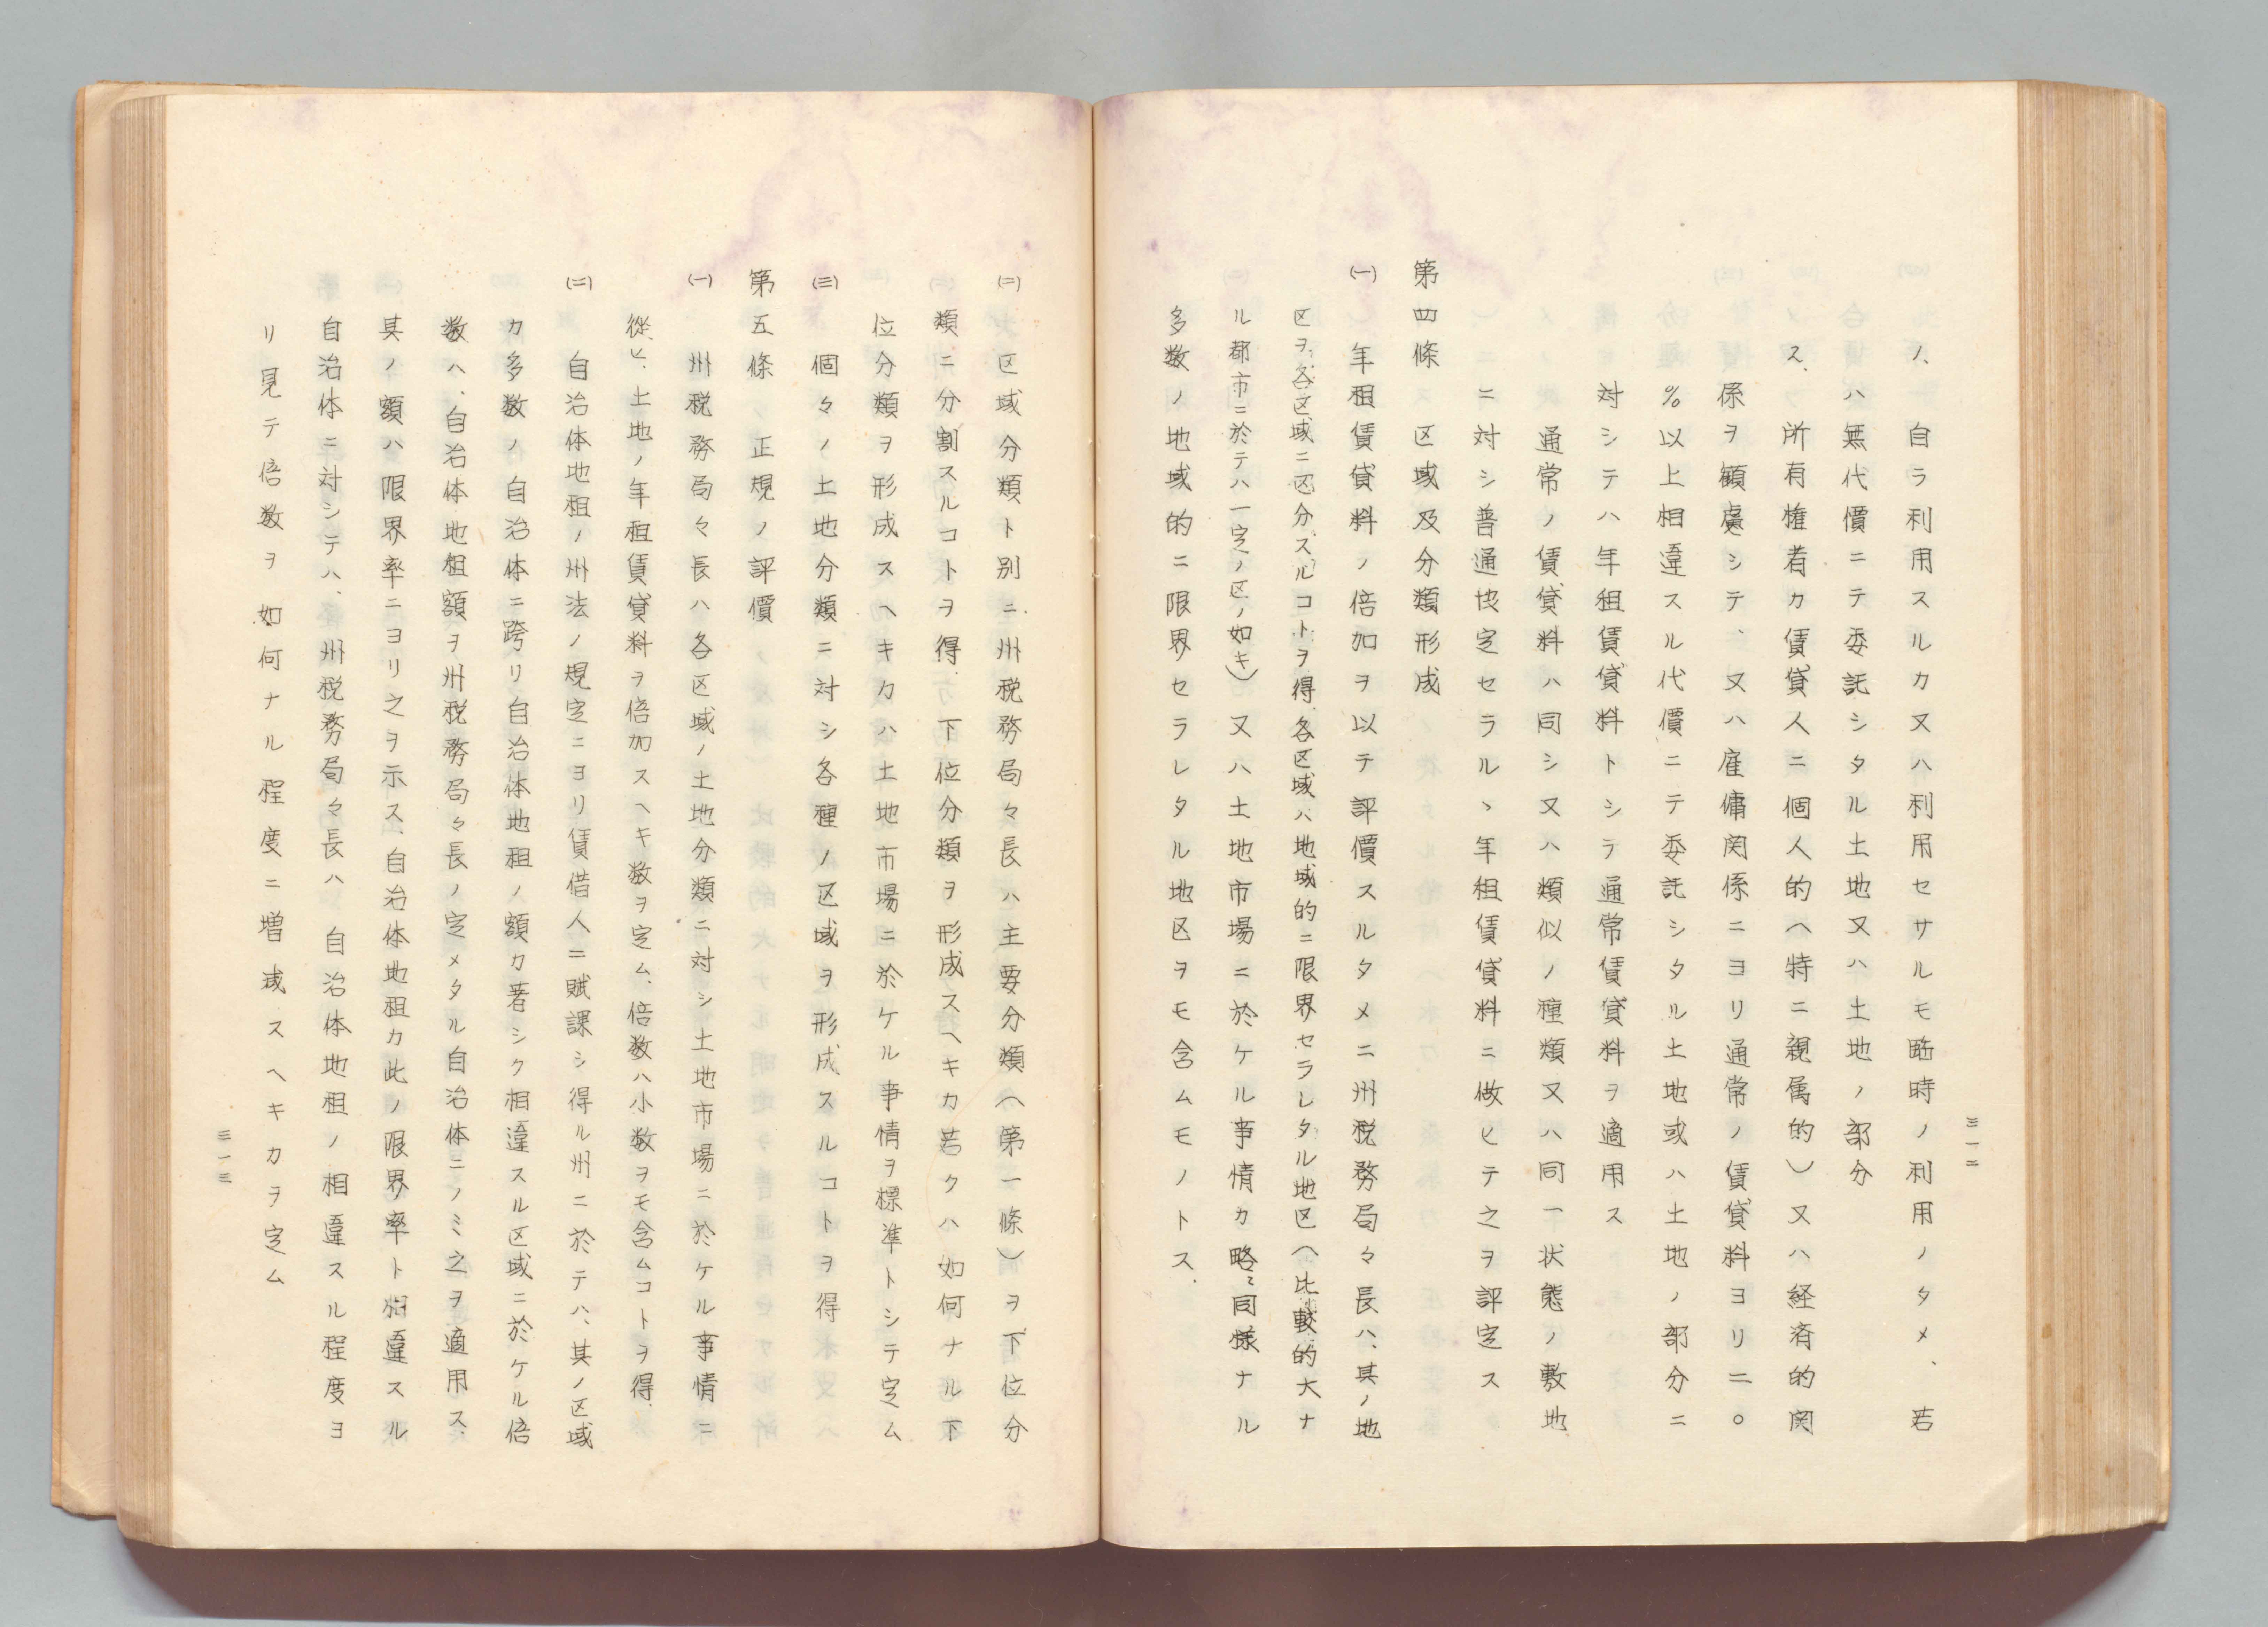 ノ、自ラ利用スルカ又ハ利用セサルモ臨時ノ利用ノタメ、若
ハ無代價ニテ委託シタル土地又ハ土地ノ部分
ス、所有権者カ賃貸人ニ個人的（特ニ親属的）又ハ経済的関
係ヲ顧慮シテ、又ハ雇傭関係ニヨリ通常ノ賃貸料ヨリ二〇
％以上相違スル代價ニテ委託シタル土地或ハ土地ノ部分ニ
対シテハ年租賃貸料トシテ通常賃貸料ヲ適用ス
通常ノ賃貸料ハ同シ又ハ類似ノ種類又ハ同一状態ノ敷地
ニ対シ普通協定セラルヽ年租賃貸料ニ倣ヒテ之ヲ評定ス
第四條　区域及分類形成
(一)　年租賃貸料ノ倍加ヲ以テ評價スルタメニ州税務局々長ハ、其ノ地
区ヲ、各区域ニ区分スルコトヲ得、各区域ハ地域的ニ限界セラレタル地区（比較的大ナ
ル都市ニ於テハ一定ノ区ノ如キ）又ハ土地市場ニ於ケル事情カ略〻同様ナル
多数ノ地域的ニ限界セラレタル地区ヲモ含ムモノトス、
(二)　区域分類ト別ニ、州税務局々長ハ主要分類（第一條）ヲ下位分
類ニ分割スルコトヲ得、下位分類ヲ形成スヘキカ若クハ如何ナル下
位分類ヲ形成スヘキカハ土地市場ニ於ケル事情ヲ標準トシテ定ム
(三)　個々ノ土地分類ニ対シ各種ノ区域ヲ形成スルコトヲ得
第五條　正規ノ評價
(一)　州税務局々長ハ各区域ノ土地分類ニ対シ土地市場ニ於ケル事情ニ
從ヒ、土地ノ年租賃貸料ヲ倍加スヘキ数ヲ定ム、倍数ハ小数ヲモ含ムコトヲ得、
(二)　自治体地租ノ州法ノ規定ニヨリ賃借人ニ賦課シ得ル州ニ於テハ、其ノ区域
カ多数ノ自治体ニ跨リ自治体地租ノ額カ著シク相違スル区域ニ於ケル倍
数ハ、自治体地租額ヲ州税務局々長ノ定メタル自治体ニノミ之ヲ適用ス、
其ノ額ハ限界率ニヨリ之ヲ示ス、自治体地租カ此ノ限界率ト相違スル
自治体ニ対シテハ、州税務局々長ハ、自治体地租ノ相違スル程度ヨ
リ見テ倍数ヲ如何ナル程度ニ増減スヘキカヲ定ム
三一二
三一三